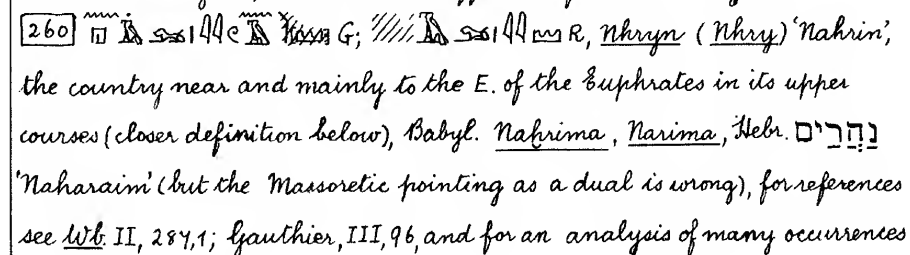 [260] G; R, Nhryn (Nhry) 'Nahrin',
the country near and mainly to the E. of the Euphrates in its upper
courses (closer definition below), Babyl. Naḫrima, Narima, Hebr. נַהֲרַיִם
'Naharaim' (but the Massoretic pointing as a dual is wrong), for references
see Wb. II, 287,1; Gauthier, III, 96, and for an analysis of many occurrences